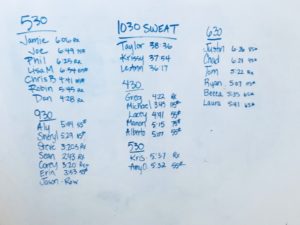 530
Jamie 6:06 RX
Joe 6:49
Phil 6:25 RX
Lisa M 6:54
Chris B 9:41
Robin 5:45 RX
Dan 4:28 RX
930
Aly 5:04
Sheryl 5:29
Steve 3:20
Sean 2:43 RX
Corey 3:20 RX
Erin 3:53
Jason - Row
1030 SWEAT
Taylor 38:36
Krissy 37:54
LeAnn 36:17
430
Greg 4:22 RX
Michael 3:45
Lacey 4:41
Manon 5:15
Alberto 5:07
530
Kris 5:37 RX
Amy D. 5:32
630
Justin 6:36
Chad 6:29
Tom 5:22 RX
Ryan 5:07
Becca 5:35
Laura 5:41